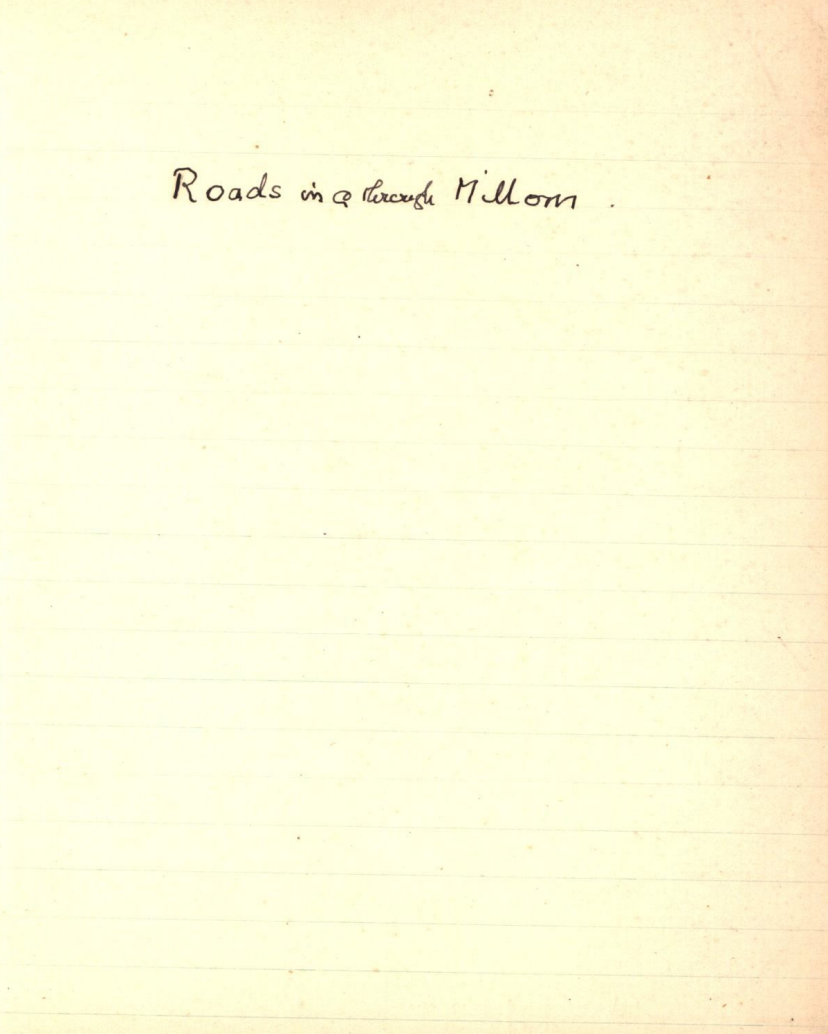 Roads in & through Millom .